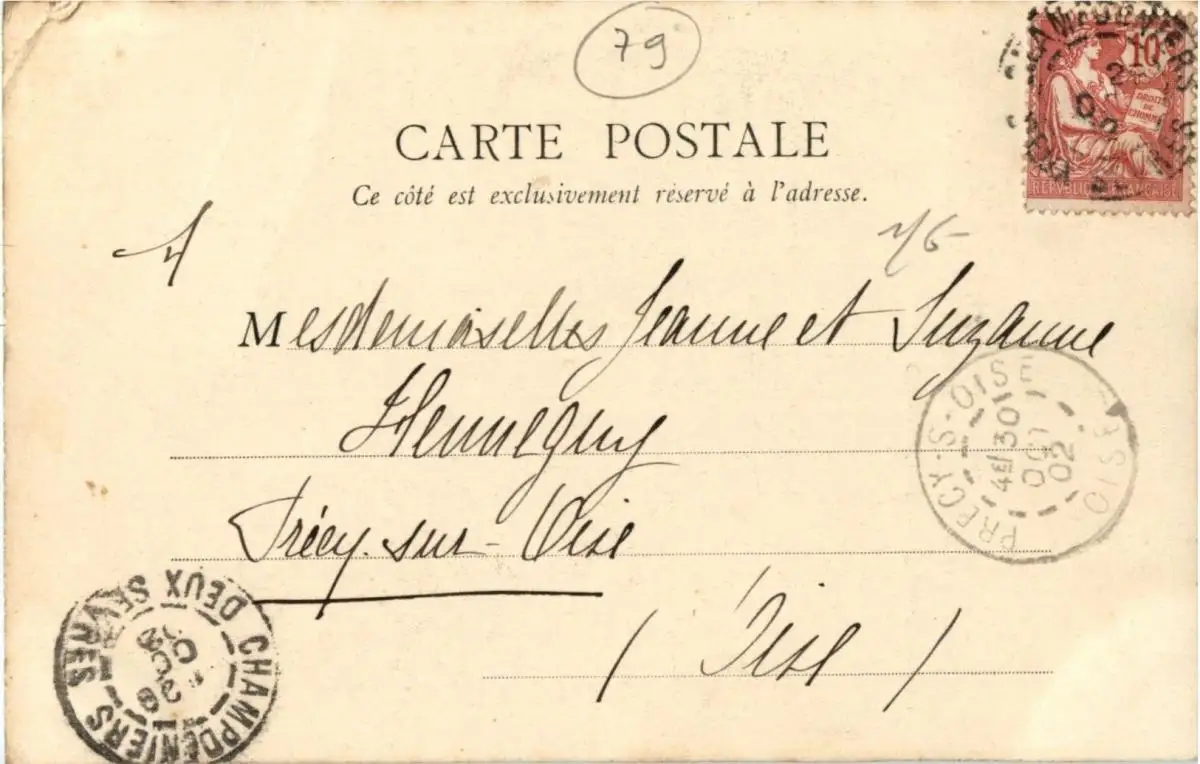 79
CARTE POSTALE
Ce côté est exclusivement réservé à l'adresse.
10
DROITS DE L'HOMME
RÉPUBLIQUE FRANÇAISE
CHAMPDENIERS
Mesdemoiselles Jeanne et Suzanne
Henneguy
Précy-sur-Oise
(Oise)
PRECY-S-OISE
4E/30
OCT
02
OISE
CHAMPDENIERS
DEUX SÈVRES